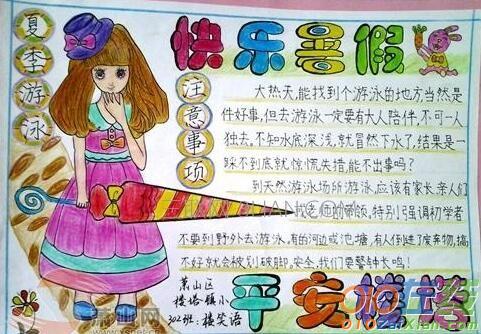 快乐暑假
夏季游泳
注意事项
大热天,能找到个游泳的地方当然是
件好事,但去游泳一定要有大人陪伴,不可一人
独去。不知水底深浅,就冒然下水了,结果是一
踩不到底就惊慌失措,能不出事吗?
到天然游泳场所游泳,应该有家长、亲人们
的带领,特别强调初学者
不要到野外去游泳,有的河边或池塘,有人倒进了废弃物,搞
不好就会被划破脚。安全,我们要警钟长鸣!
萧山区
楼塔镇小
302班:楼笑语
平安楼塔